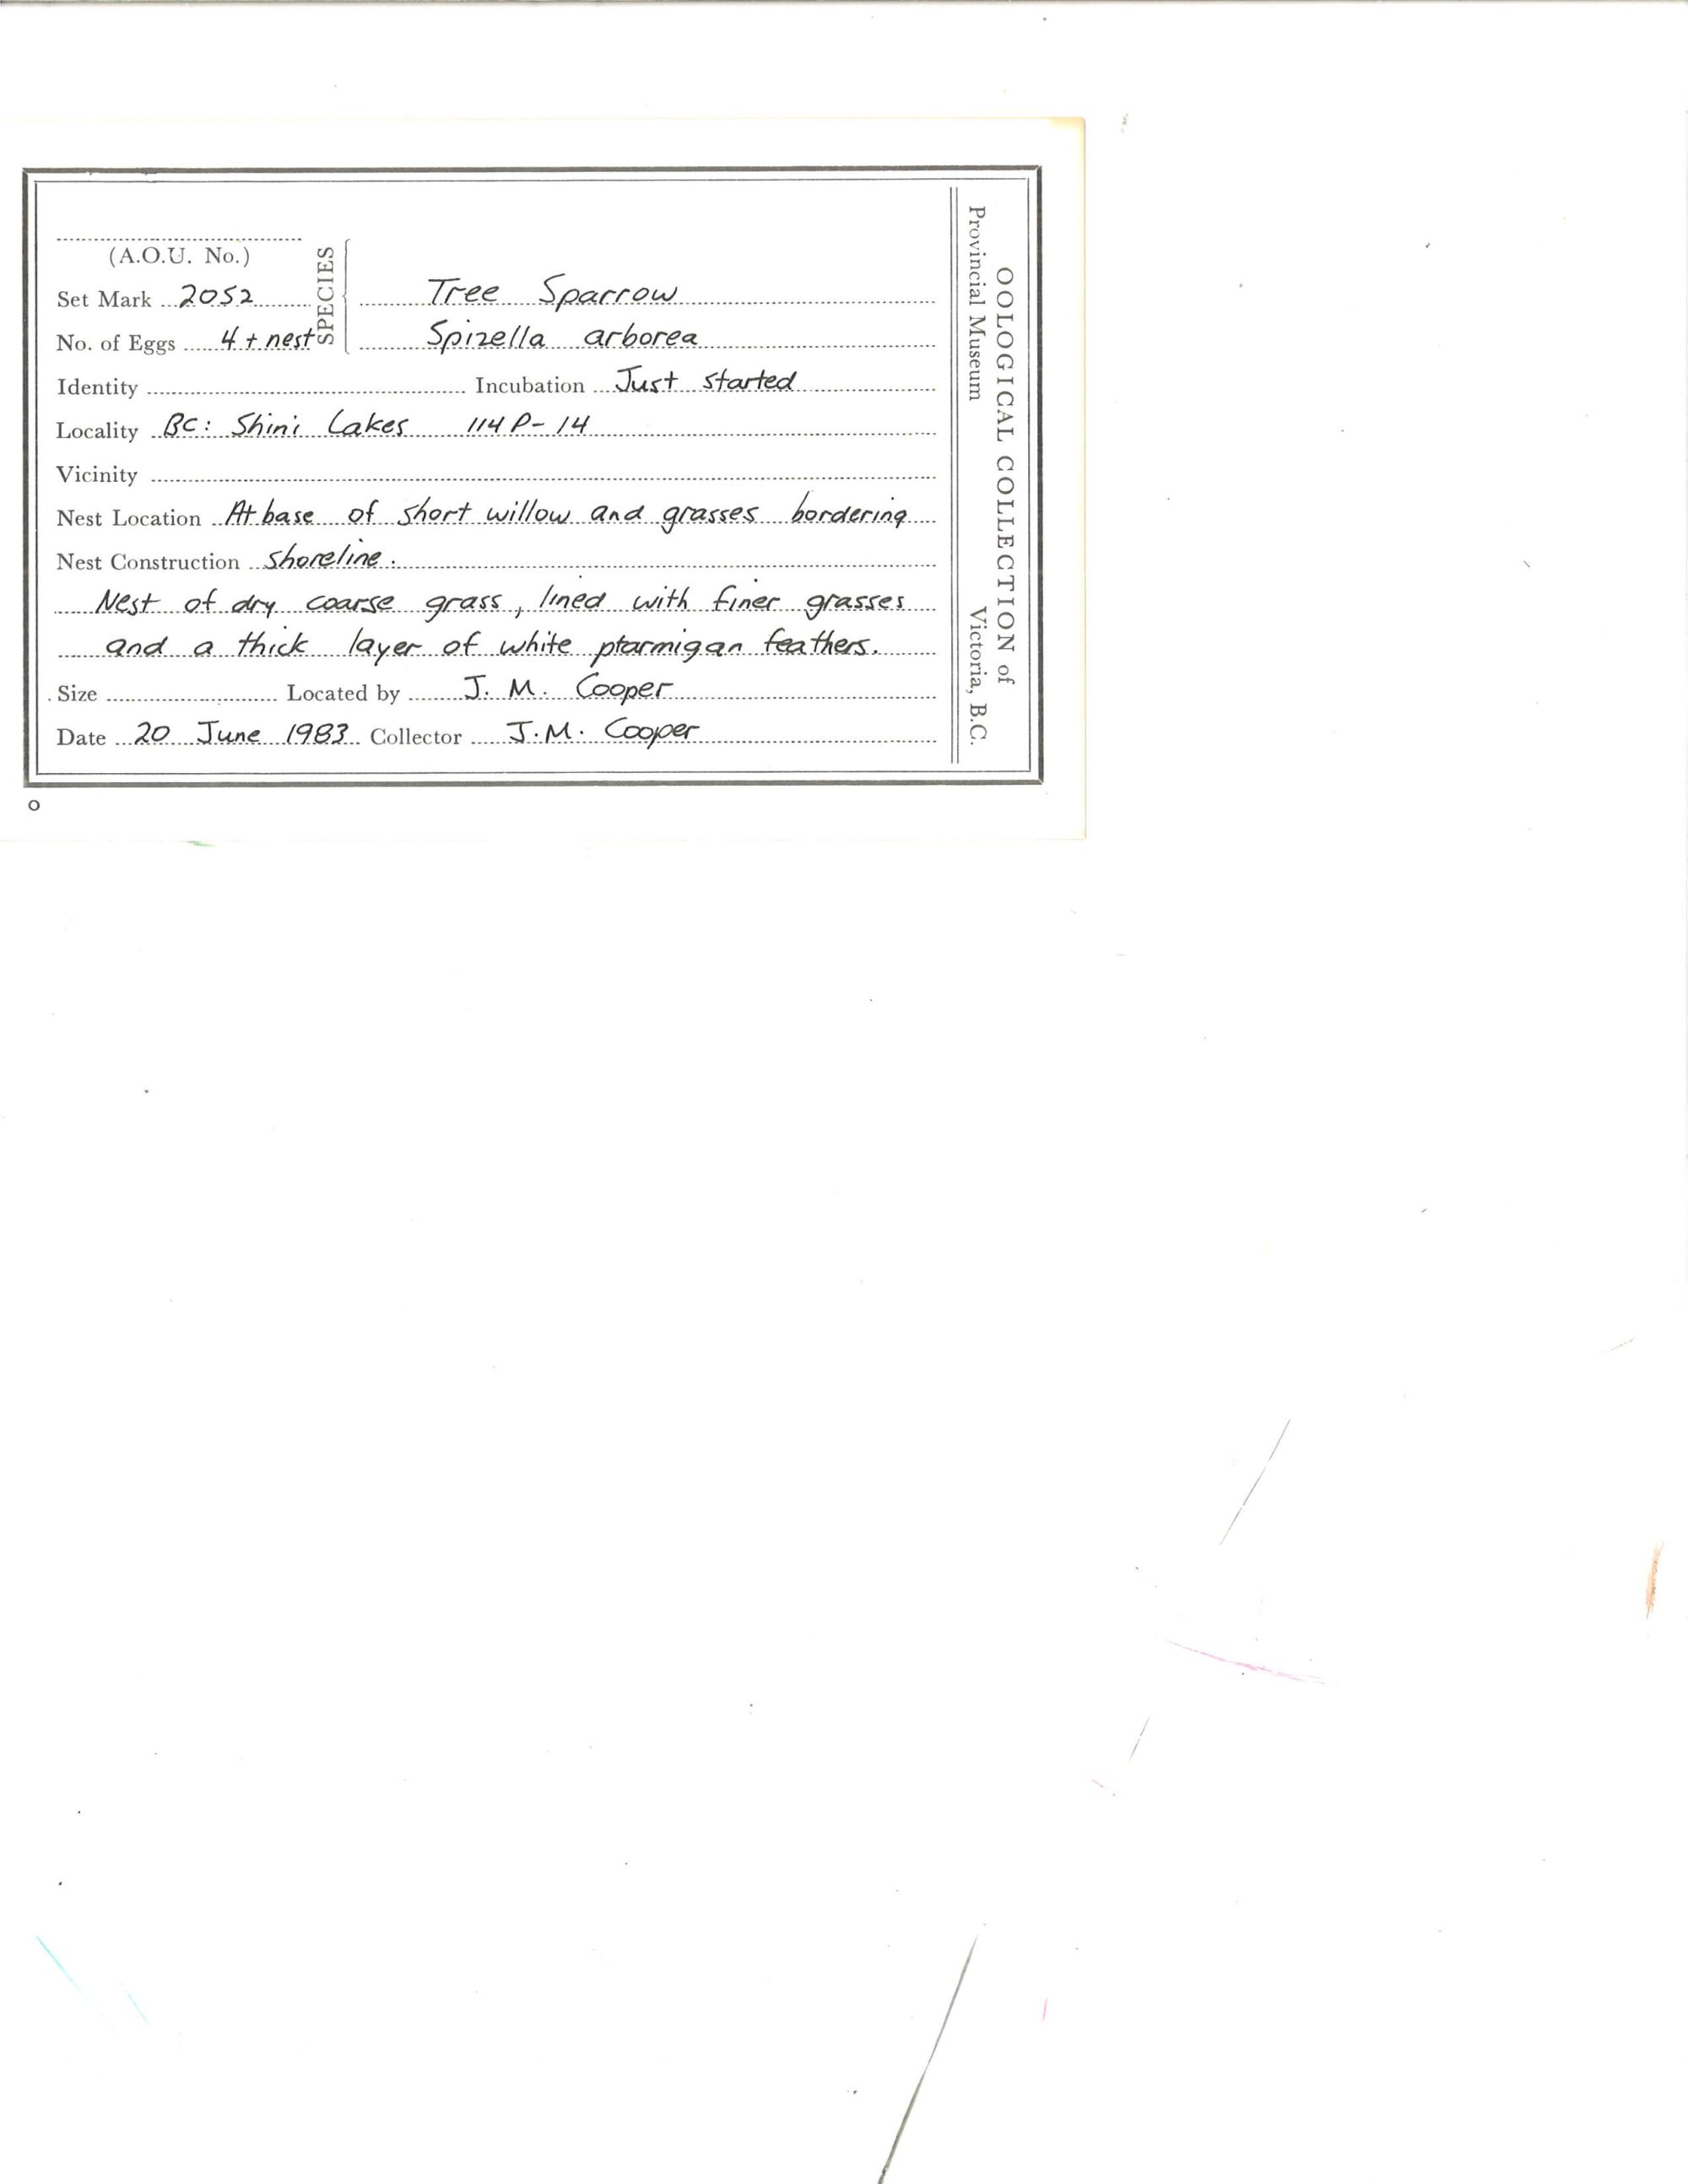 (A.O.U. No.)
SPECIES
Set Mark 2052 Tree Sparrow
No. of Eggs 4 + nest Spizella arborea
Identity Incubation Just started
Locality BC: Shini Lakes 114 P-14
Vicinity
Nest Location At base of short willow and grasses bordering
Nest Construction shoreline.
Nest of dry coarse grass, lined with finer grasses
and a thick layer of white ptarmigan feathers.
Size Located by J. M. Cooper
Date 20 June 1983 Collector J.M. Cooper
OOLOGICAL COLLECTION of
Provincial Museum Victoria, B.C.
O